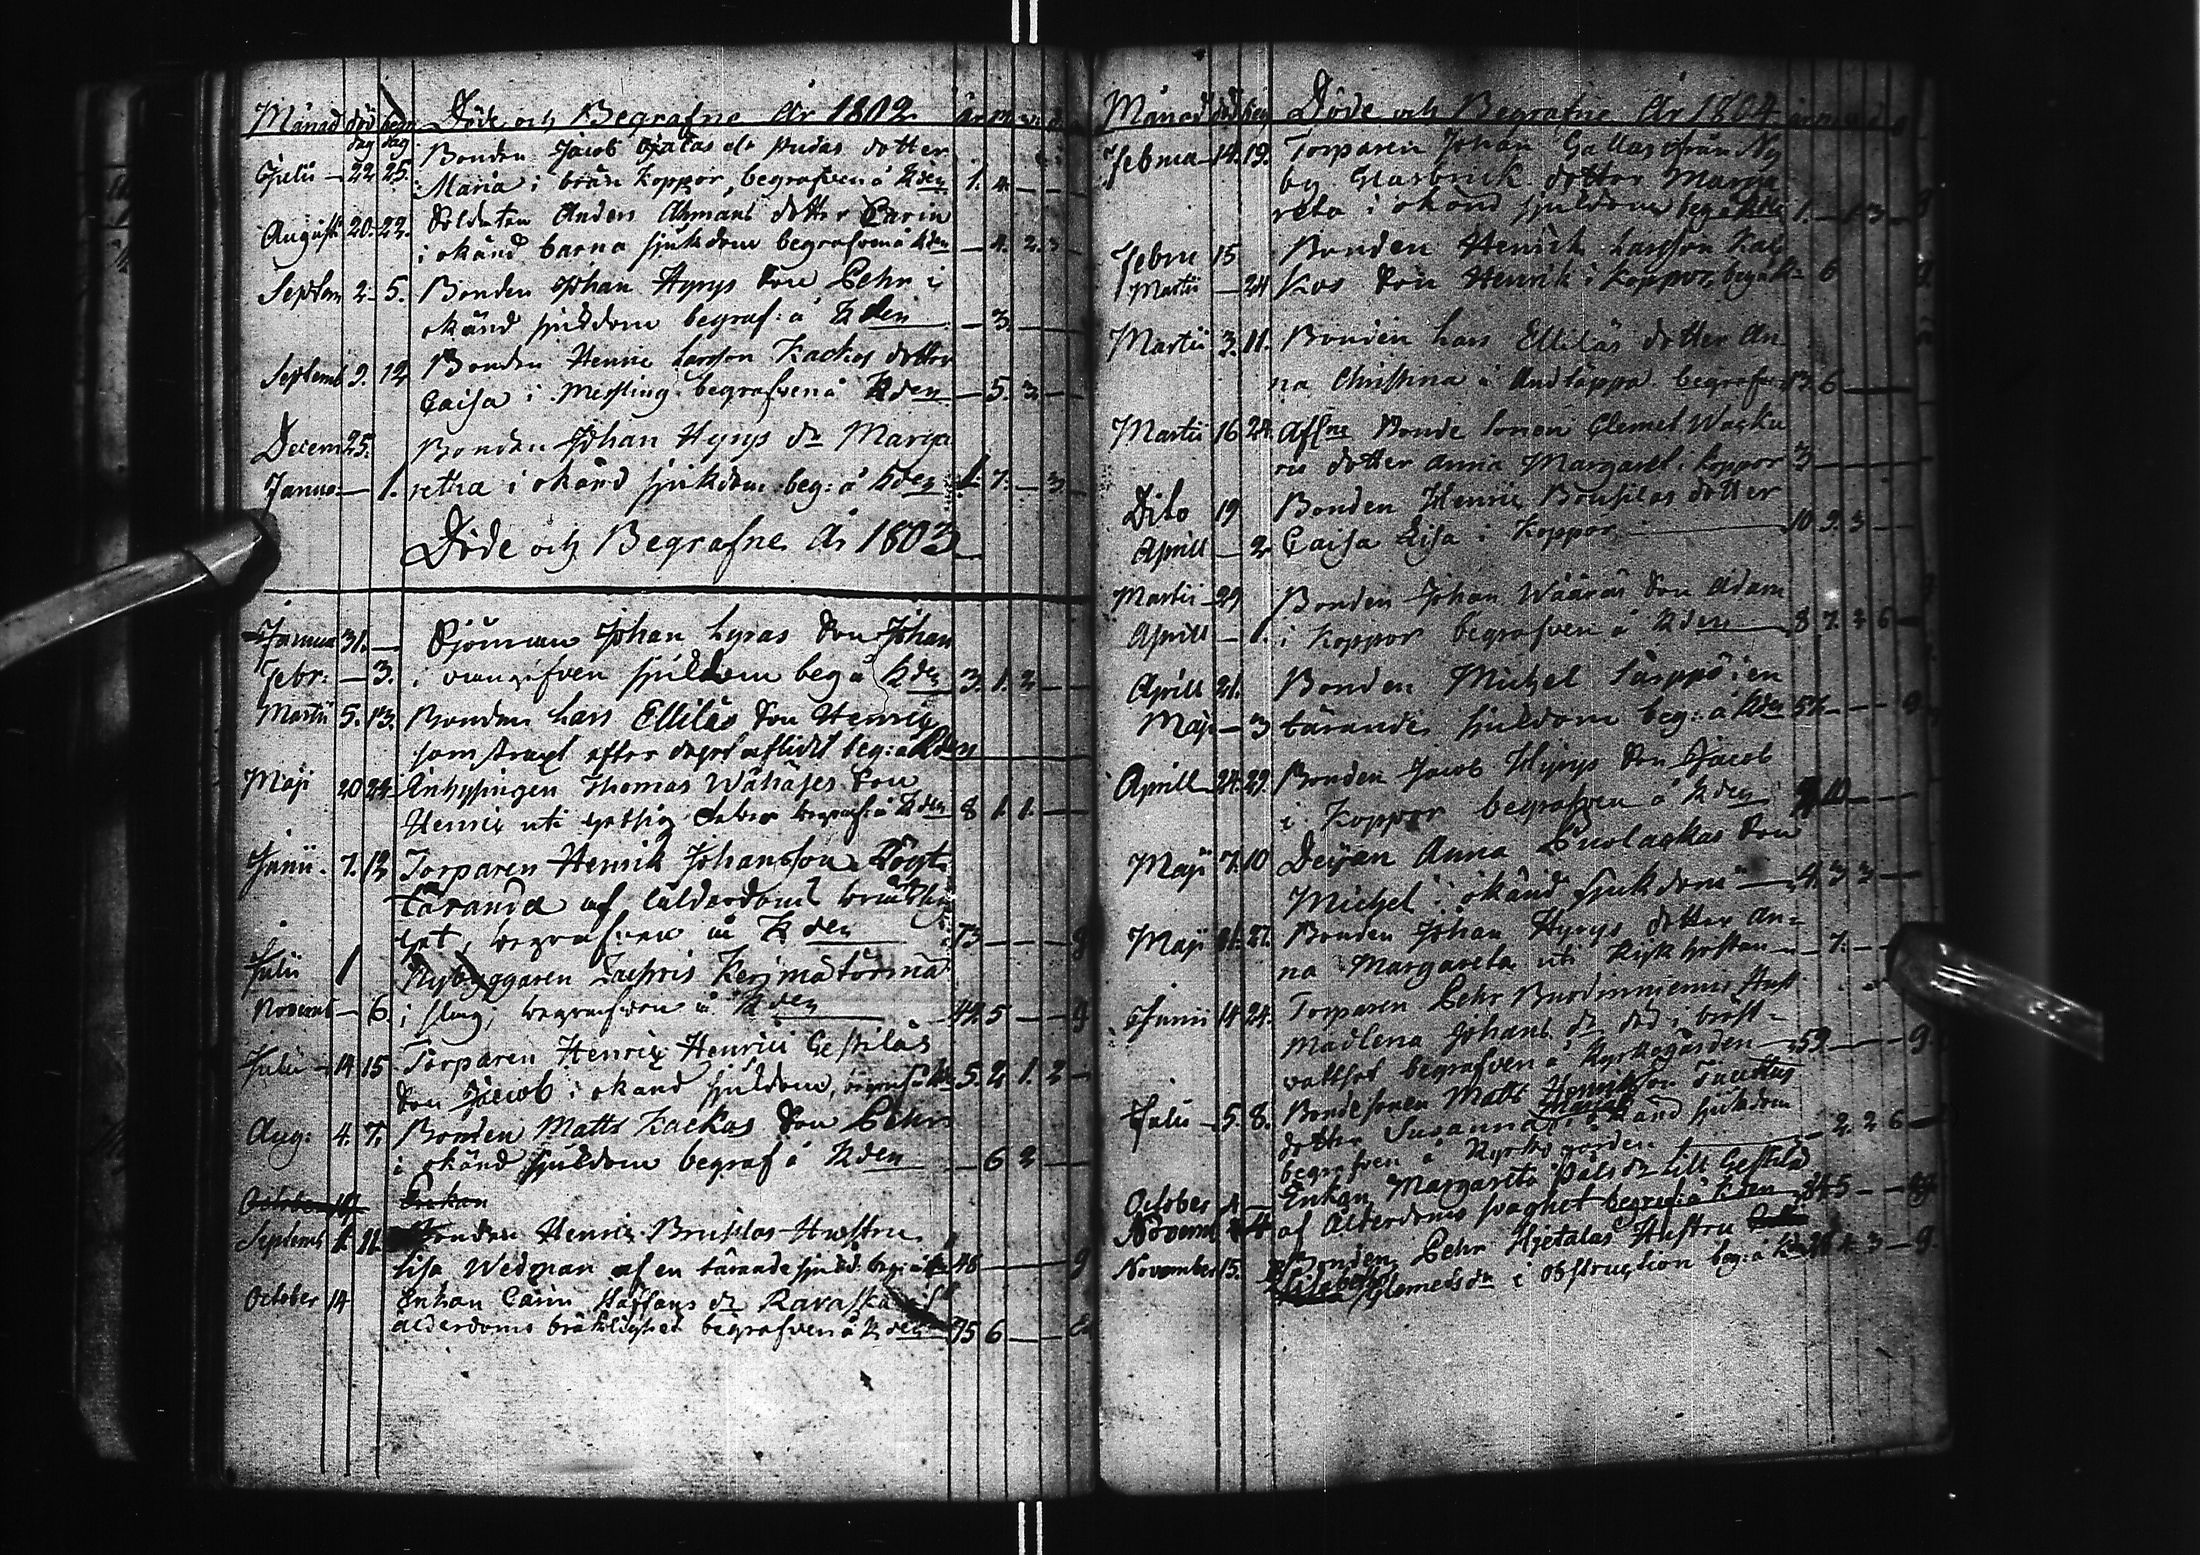 Månad död begr Döde och Begrafne År 1802. år m v d
dag dag
Julii - 22 25. Bonden Jacob dotter
Maria i bråda Koppor, begrafven å Kden 1. 4. - -
August 20. 22. Soldaten Anders Åhmans dotter Carin
i okänd barna sjukdom begrafven å Kden - 4. 2. 3
Septem 2. 5. Bonden Johan Hyrys Son Pehr i
okänd sjukdom begraf: å Kden - 3. - -
Septemb 9. 12 Bonden Henric Larsson Kackos dotter
Caisa i Mesling begrafven å Kden - 5. 3. -
Decem 25. Bonden Johan Hyrys dr Marga
Janua - 1. retha i okänd sjukdom beg: å Kden 1. 7. - 3 -
Döde och Begrafne År 1803
Janua 31. - Sjöman Johan Lyras Son Johan
Febr: - 3. i oangifven sjukdom beg å Kden 3. 1. 2 - -
Martii 5. 13. Bonden Lars Elliläs Son Henric
som straxt efter dopet aflidit beg: å Kden
Maji 20 24. Inhysingen Thomas Wähäjes Son
Henric uti begraf: å Kden 8 1. 1. -
Junii. 7. 12 Torparen Henrik Johansson
tärande af ålderdoms
het, begrafven å Kden 73 - - - 9
Julii 1 Nybyggaren Zachris Kerimatörmä
Novemb - 6. i slag, begrafven å Kden 42 5 - - 9
Julii - 14 15 Torparen Henric Henrici Gestiläs
Son Jacob i okänd sjukdom, begraf å Kden 5. 2 1. 2 -
Aug: 4. 7. Bonden Matts Kackos Son Pehr
i okänd sjukdom begraf å Kden - 6 2 -
October 19 Enkan
Septemb 1. 11. Bonden Henric Brusilas Hustru
Lisa Wedman af en tärande sjukd. beg: å Kden 46 - - - 9
October 14 Enkan Carin Staffans dr Ravaska af
ålderdoms bräcklighet begrafven å Kden 75 6 - -
Månad död beg Döde och Begrafne År 1804
Februa 14. 19. Torparen Johan Gallas från Ny
by Glasbruk dotter Marga
reta i okänd sjukdom beg å Kden 1. - 1 3 -
Febru 15 Bonden Henrik Larsson Kac
Martii - 24 kos Son Henrik i Koppor, beg å K - 6
Martii 3. 11. Bonden Lars Elliläs dotter An
na Christina i Andtäppa begrafven 13. 6
Martii 16 24. Aflne Bonde Sonen Clemet Wasku
ris dotter Anna Margaret. i Koppor 3
Dito 19 Bonden Henric Brusilas dotter
Aprill - 2. Caisa Lisa i Koppor 10 9. 3
Martii - 29 Bonden Johan Wääräs Son Adam
Aprill - 1. i Koppor begrafven å Kden 8 7. 3 6 -
Aprill 21. Bonden Michel Särppö i en
Maji - 3 tärande sjukdom beg: å Kden 57 - - - 9
Aprill 24. 29. Bonden Jacob Hyrys Son Jacob
i Koppor begrafven å Kden 10 - -
Maji 7. 10 Deijan Anna Puolackas Son
Michel i okänd sjukdom 4. 3 3 -
Maji 21. 27. Bonden Johan Hyrys dotter An=
na Margareta uti Kikhostan - 7. - -
Junii 14 24. Torparen Pehr Hust
Madlena Johans dr död i bröst-
vattsot begrafven å Kyrkogården 59 - - - 9.
Julii - 5. 8. Bondesonen Matts Henriksson
dotter Susanna i okänd sjukdom
begrafven å Kyrkogården - 2. 2 6 -
October 4 - Enkan Margareta Påls dr Lill Gestilä
Novem - 4. af Ålderdoms svaghet begraf: å Kden 84. 5 - -
November 15. Bonden Pehr Hjetalas Hustru
Clemets dr i Obstruction beg: å Kden 3 - 9.